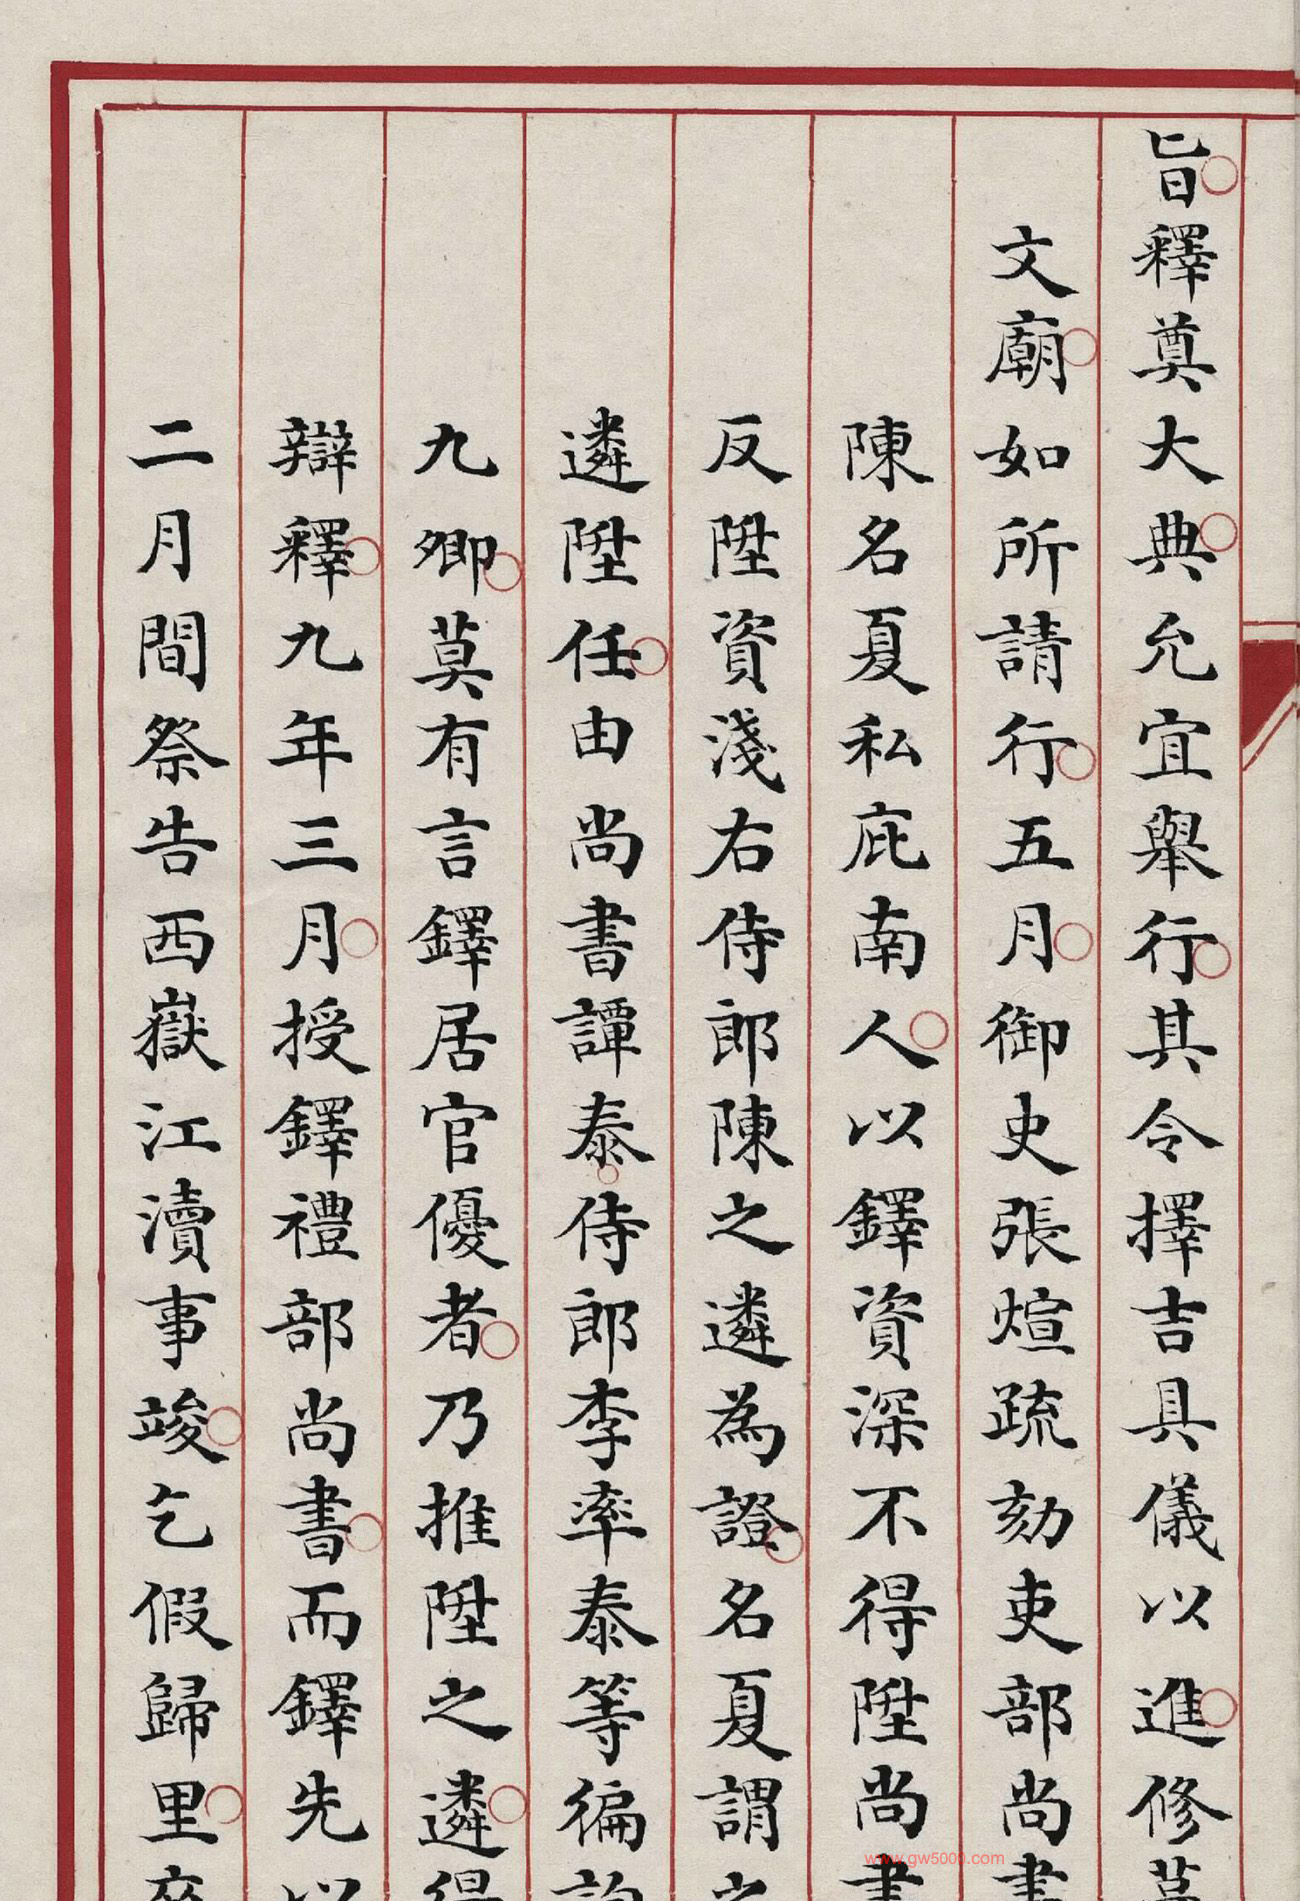 旨釋奠大典允宜舉行其令擇吉具儀以進修
文廟如所請行五月御史張煊疏劾吏部尚書
陳名夏私庇南人以鐸資深不得陞尚書
反陞資淺右侍郎陳之遴為證名夏謂之
遴陞任由尚書譚泰侍郎李率泰等徧詢
九卿莫有言鐸居官優者乃推陞之遴得
辯釋九年三月授鐸禮部尚書而鐸先以
二月間祭告西嶽江瀆事竣乞假歸里卒
www.gw5000.com